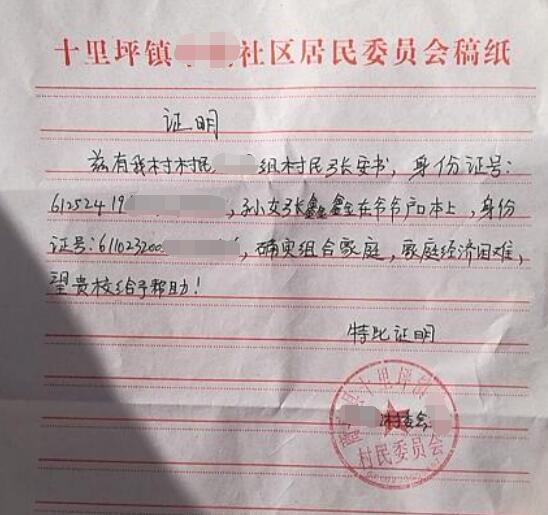 十里坪镇 社区居民委员会稿纸
证明
兹有我村村民 组村民张安书，身份证号：
61252419 ，孙女张鑫鑫在爷爷户口本上，身份
证号：61102320 ，确实组合家庭，家庭经济困难，
望贵校给予帮助！
特此证明
村委会
县十里坪镇
村民委员会